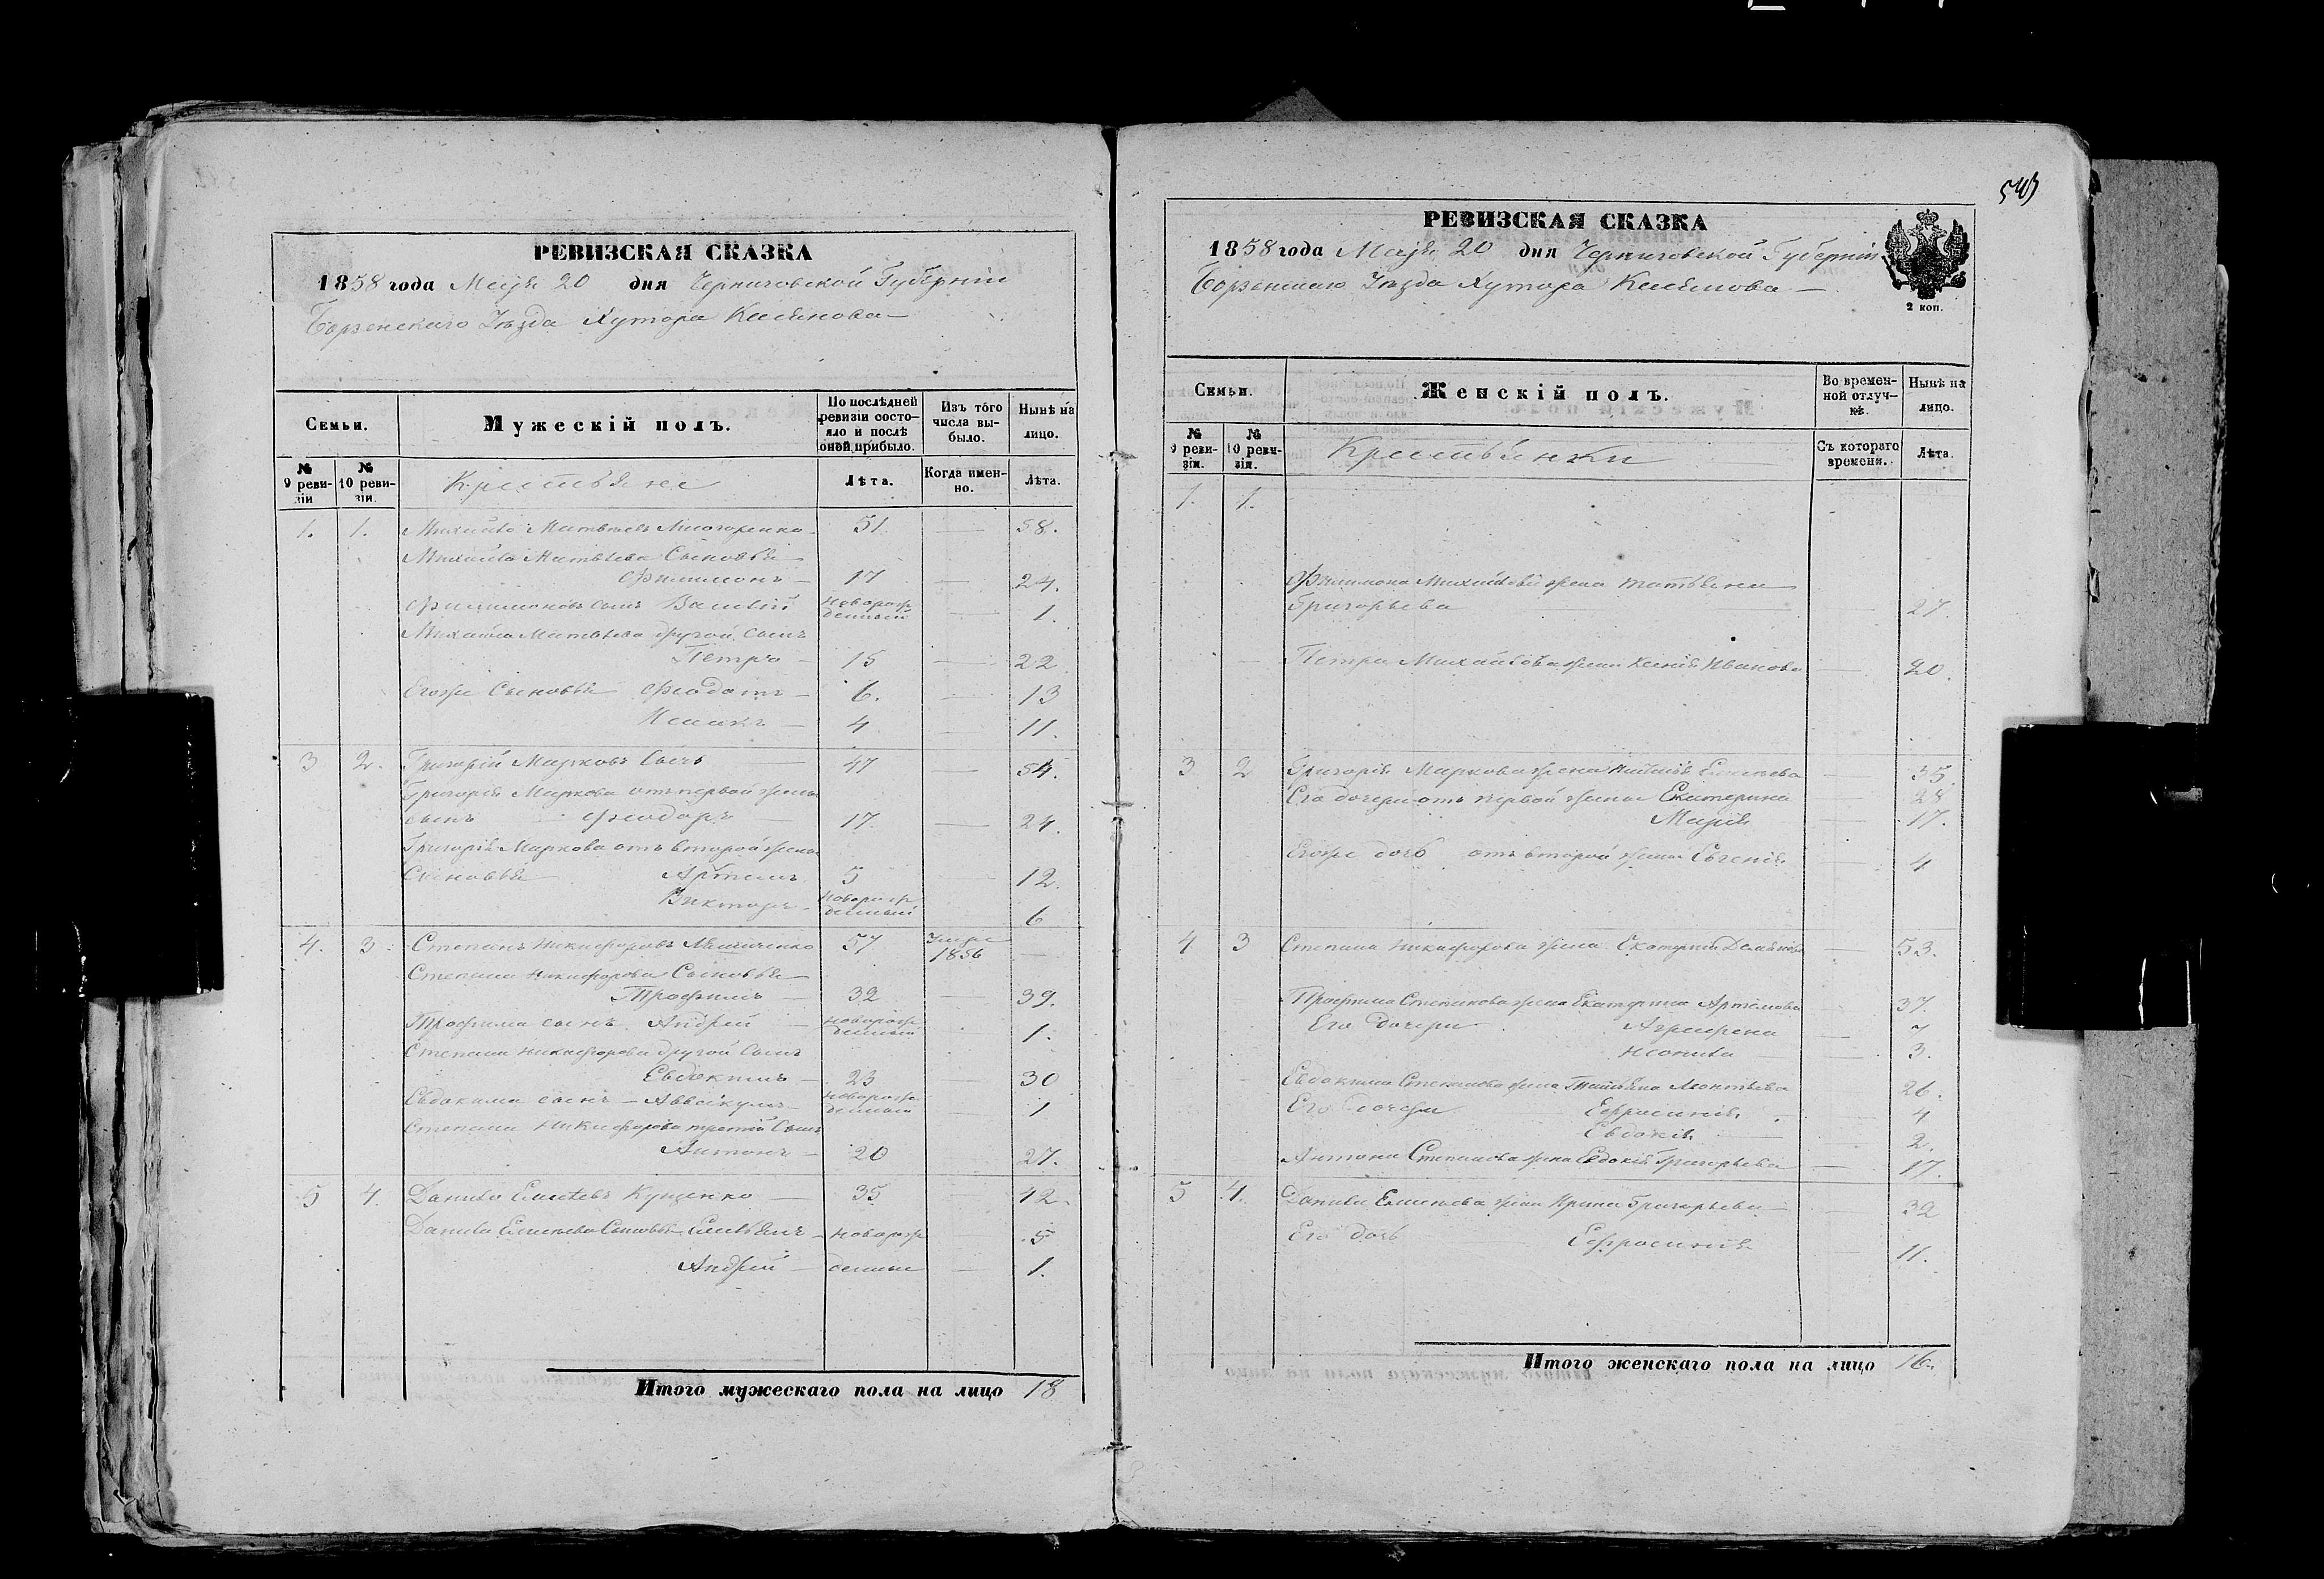 РЕВИЗСКАЯ СКАЗКА
1858 года Маія 20 дня Черниговской Губерніи
Борзенскаго Уѣзда Хутора
Семьи.
Мужескій полъ.
По послѣдней ревизіи состояло и послѣ оной прибыло.
Изъ того числа выбыло.
Нынѣ на лицо.
№ 9 ревизіи
№ 10 ревизіи.
Крестьяне
Лѣта.
Когда именно.
Лѣта.
1. 1. Михайло Матвѣевъ 51 — 58.
Михайла Матвѣева Сыновья
Филимонъ — 17 — 24.
Филимоновъ сынъ Василій новорожденный — 1.
Михайла Матвѣева другой сынъ
Петро — 15 — 22
Егоже Сыновья Феодотъ — 6. — 13
Исаакъ — 4 — 11.
3 2. Григорій Марковъ Сычъ 47 — 54.
Григорія Маркова отъ первой жены
сынъ Феодоръ — 17. — 24.
Григорія Маркова отъ второй жены
Сыновья Артемъ 5 — 12.
Викторъ — новорожденный 6
4. 3. Степанъ Никифоровъ 57 Умре 1856 —
Степана Никифорова Сыновья —
Трофимъ — 32 — 39.
Трофима сынъ Андрей — новорожденный 1.
Степана Никифорова другой сынъ
Евдокимъ — 23 — 30
Евдокима сынъ — Аввакумъ — новорожденный — 1
Степана Никифорова третій Сынъ
Антонъ — 20 — 27.
5 4. Данило Елисеевъ Куценко — 35 — 42.
Данила Елисеева Сыновья Емельянъ — новорож — 5
Андрей — денные — 1.
Итого мужескаго пола на лицо 18
543
РЕВИЗСКАЯ СКАЗКА
1858 года Маія 20 дня Черниговской Губерніи
Борзенскаго Уѣзда Хутора
2 коп.
Семьи.
Женскій полъ.
Во временной отлучкѣ.
Нынѣ на лицо.
№ 9 ревизіи.
№ 10 ревизіи.
Крестьянки
Съ котораго времени.
Лѣта.
1. 1.
Филимона Михайлова жена Татьяна
Григорьева — 27.
Петра Михайлова жена Ксенія Иванова — 20.
3 2 Григорія Маркова жена — 35.
Его дочери отъ первой жены Екатерина — 28
Марія — 17.
Егоже дочь отъ второй жены Евгенія — 4
4 3 Степана Никифорова жена Екатерина Демьянова — 53.
Трофима Степанова жена Екатерина Артемова — 37.
Его дочери Агрипена — 7
— 3.
Евдокима Степанова жена Татьяна Леонтьева 26.
Его дочери Ефросинія 4
Евдокія — 2.
Антона Степанова жена Евдокія Григорьева — 17.
5 4. Данила Елисеева жена Ирина Григорьева — 32
Его дочь Ефросинія — 11.
Итого женскаго пола на лицо 16.